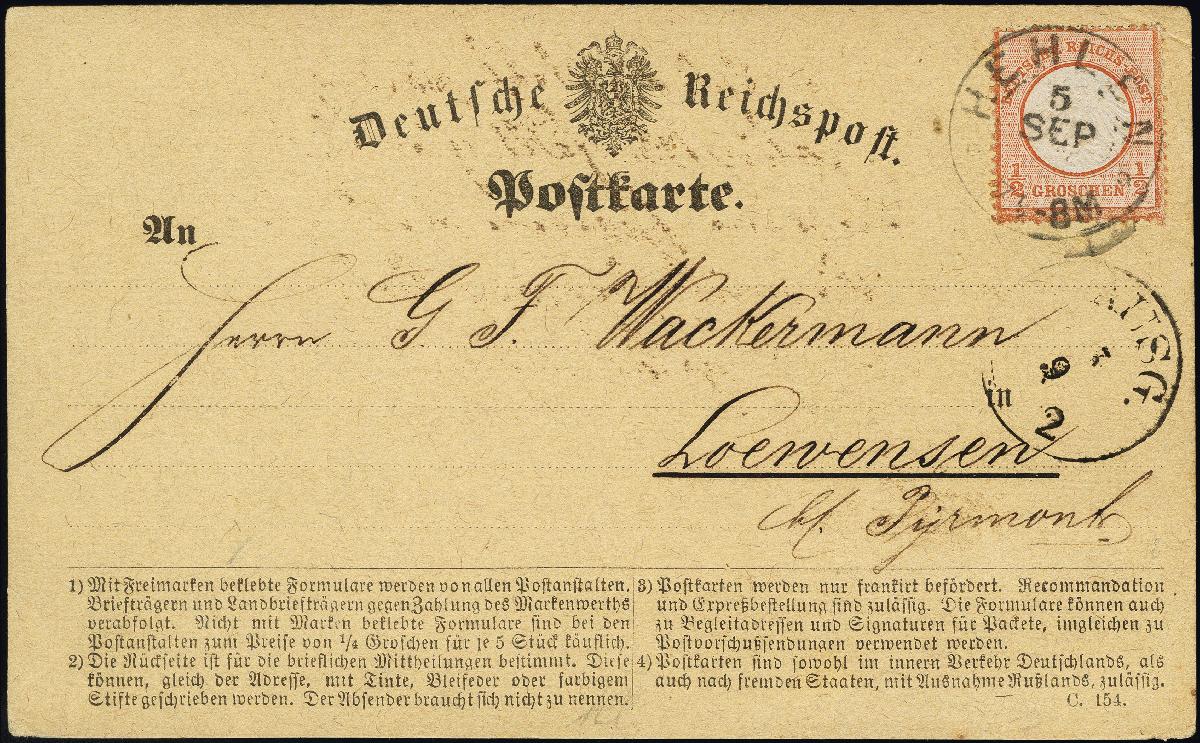 Deutsche Reichspost.
Postkarte.
DEUTSCHE REICHS-POST
HEHLEN
5
SEP
8M
½ GROSCHEN ½
An
Herrn G F. Wackermann
AUSG.
in
2
Loewensen
bf. Pyrmont
1) Mit Freimarken beklebte Formulare werden von allen Postanstalten,
Briefträgern und Landbriefträgern gegen Zahlung des Markenwerths
verabfolgt. Nicht mit Marken beklebte Formulare sind bei den
Postanstalten zum Preise von ¼ Groschen für je 5 Stück käuflich.
2) Die Rückseite ist für die brieflichen Mittheilungen bestimmt. Diese
können, gleich der Adresse, mit Tinte, Bleifeder oder farbigem
Stifte geschrieben werden. Der Absender braucht sich nicht zu nennen.
3) Postkarten werden nur frankirt befördert. Recommandation
und Expreßbestellung sind zulässig. Die Formulare können auch
zu Begleitadressen und Signaturen für Packete, imgleichen zu
Postvorschußsendungen verwendet werden.
4) Postkarten sind sowohl im innern Verkehr Deutschlands, als
auch nach fremden Staaten, mit Ausnahme Rußlands, zulässig.
C. 154.